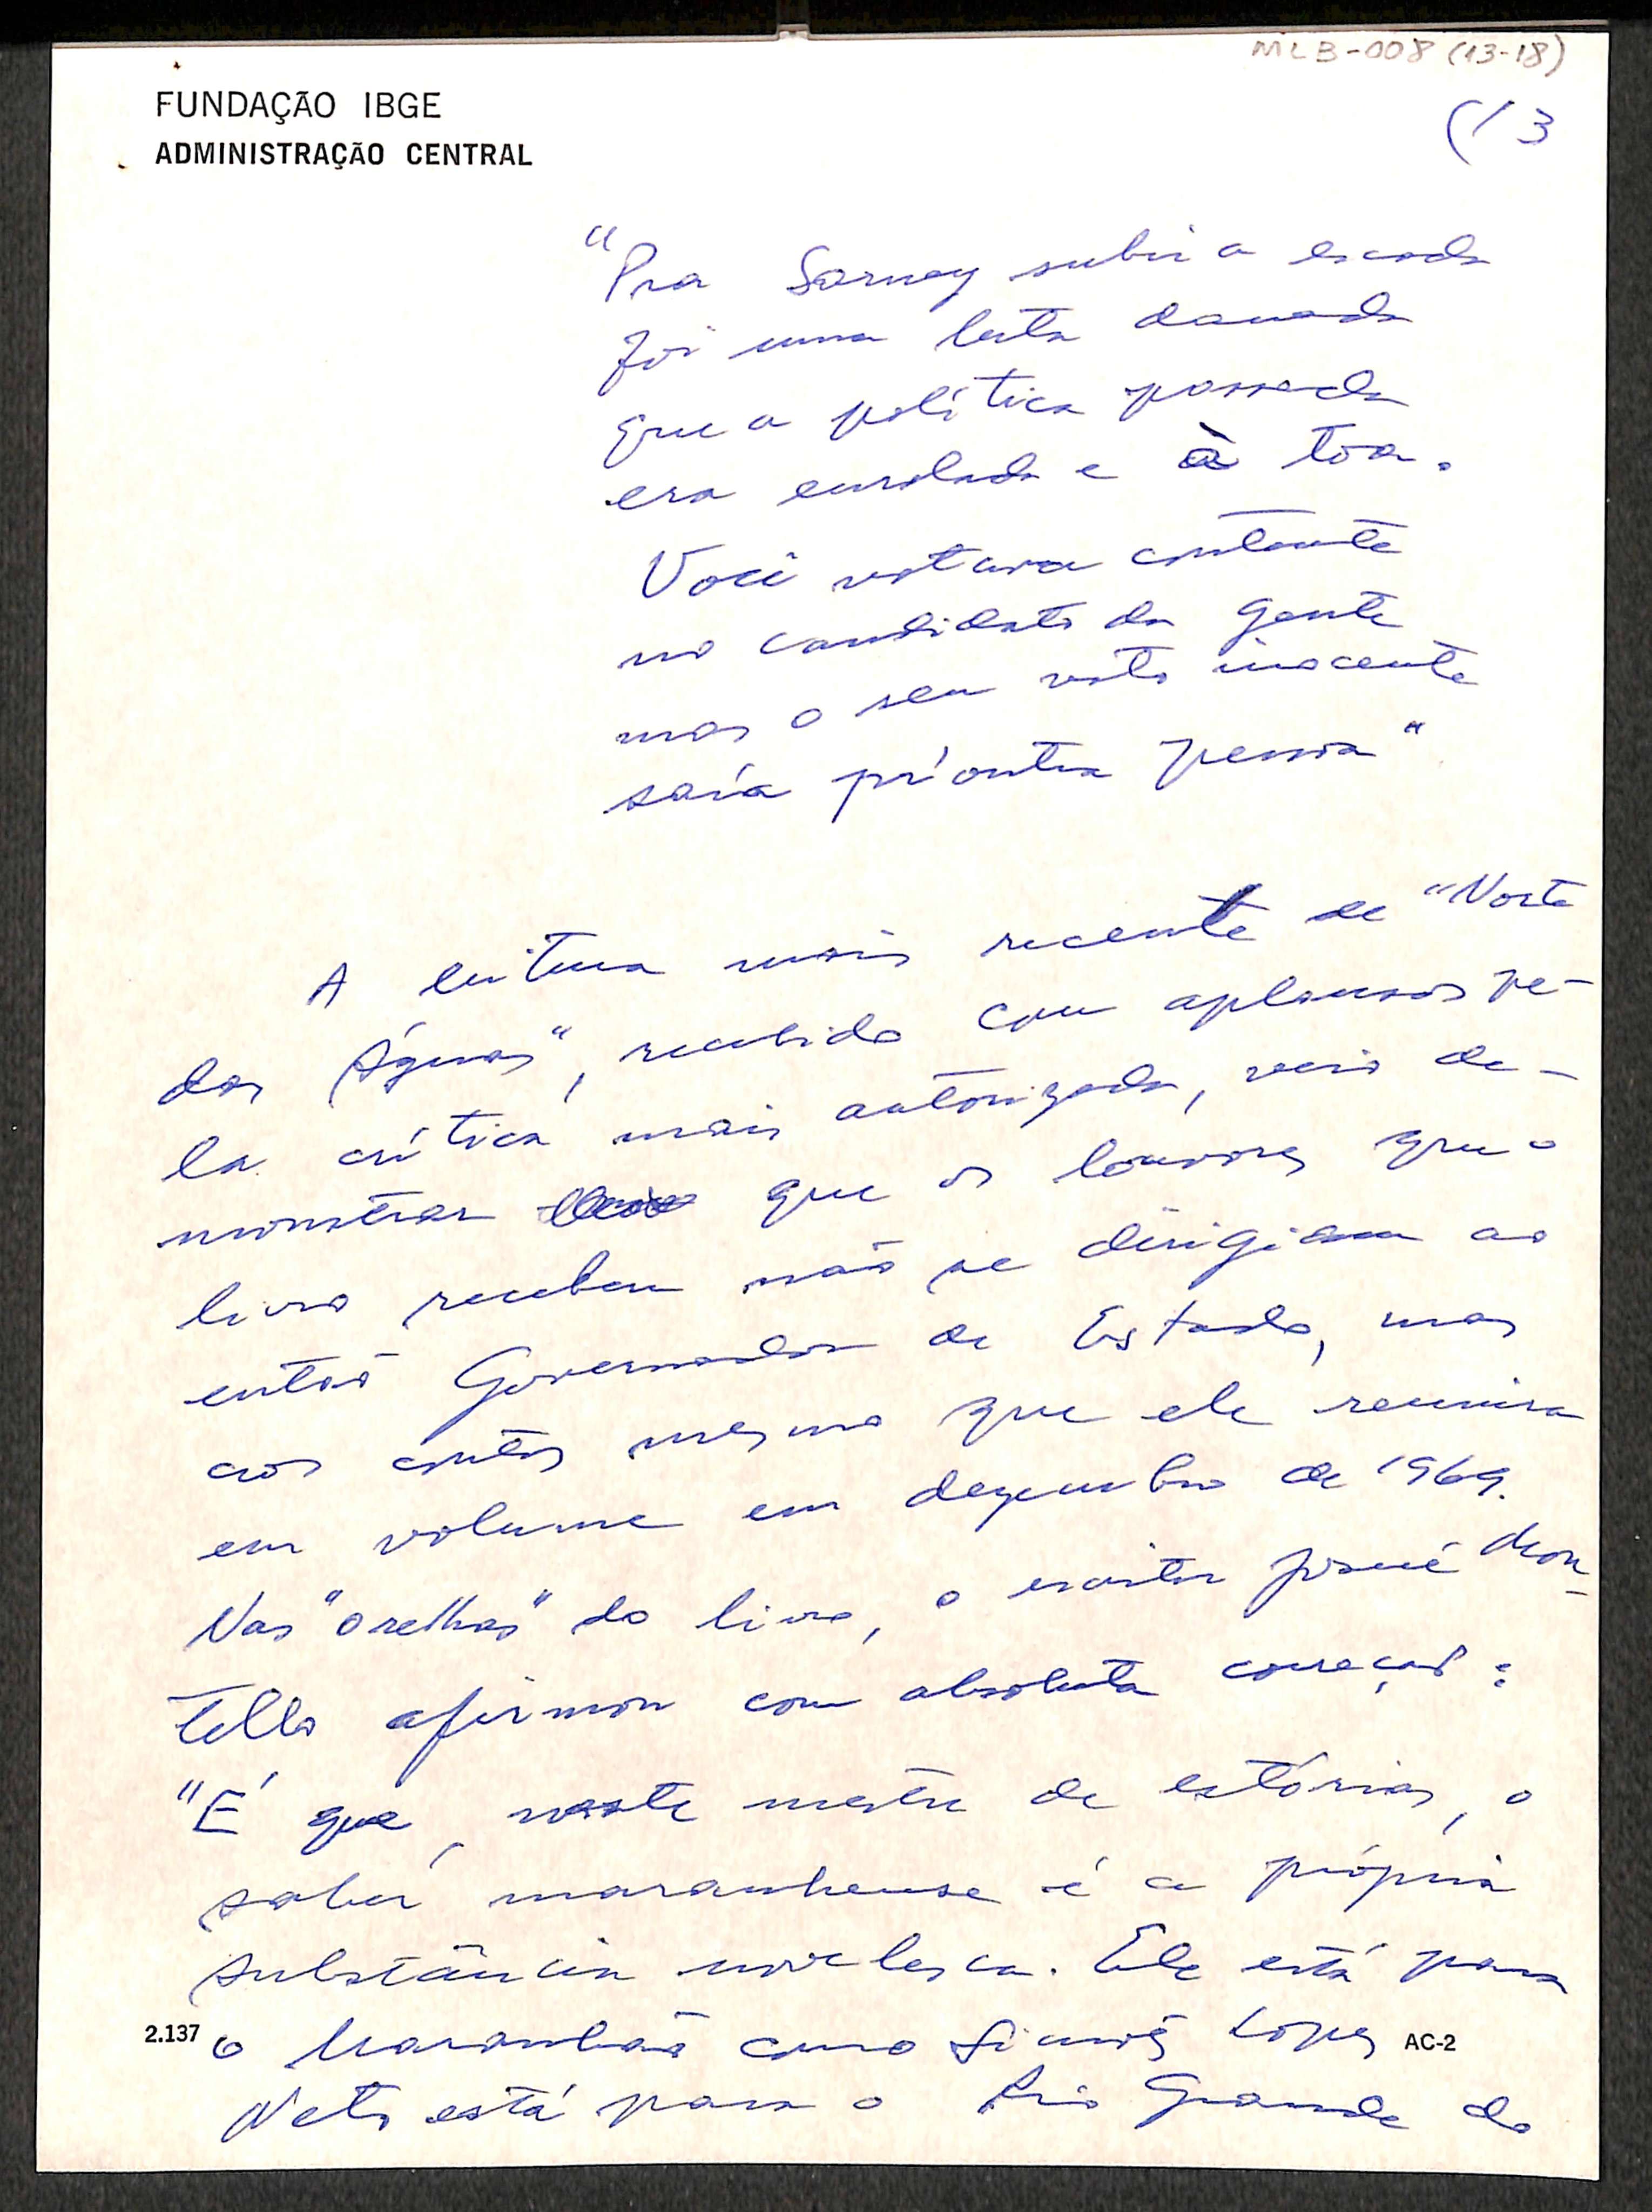 MLB-008 (13-18)
(13
FUNDAÇÃO IBGE
ADMINISTRAÇÃO CENTRAL
"Pra Sarney subir a escada
foi uma luta danada
que a política passada
era enrolada e à toa.
Você votava contente
no candidato da gente
mas o seu voto inocente
saía pr'outra pessoa"
A leitura mais recente de "Norte
das Águas", recebido com aplausos pe-
la crítica mais autorizada, veio de-
monstrar que os louvores que o
livro recebeu não se dirigiam ao
então Governador de Estado, mas
aos contos mesmo que ele reunira
em volume em dezembro de 1969.
Nas "orelhas" do livro, o escritor Josué Mon-
tello afirmou com absoluta correção:
"É que, neste mestre de estórias, o
sabor maranhense é a própria
substância novelesca. Ele está para
o Maranhão como Simões Lopes
Neto está para o Rio Grande do
2.137
AC-2